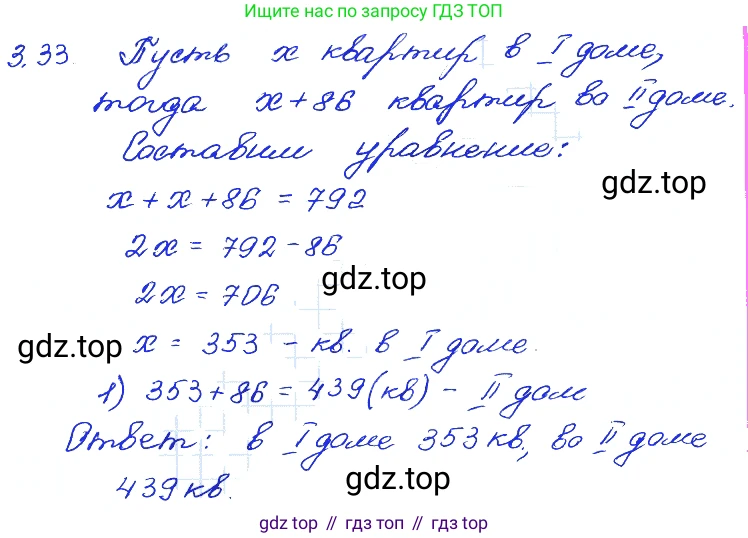 Ищите нас по запросу ГДЗ ТОП
3.33. Пусть x квартир в I доме,
тогда x+86 квартир во II доме.
Составим уравнение:
gdz.top
x+x+86=792
2x=792-86
gdz.top
2x=706
gdz.top x = 353 - кв. в I доме.
1) 353+86=439(кв) - II дом
Ответ: в I доме 353 кв, во II доме
439 кв.
gdz.top
gdz.top // гдз топ // гдз.top